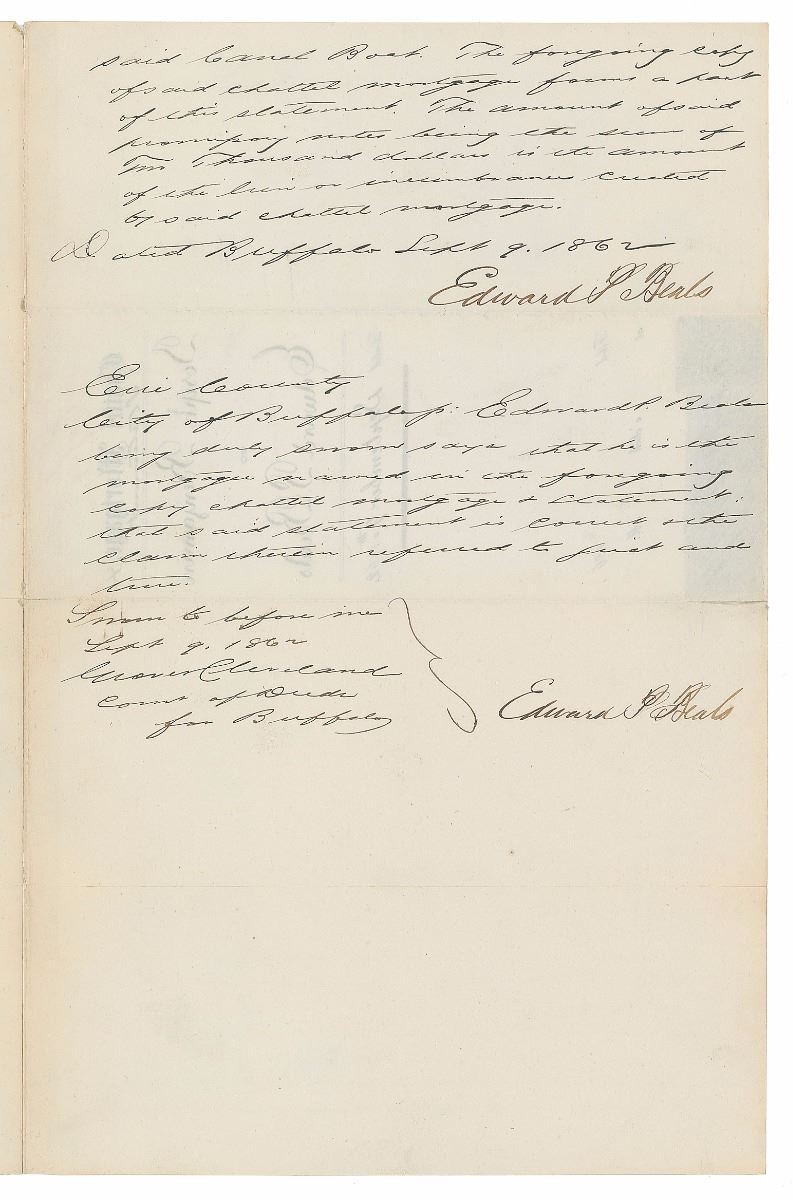 said Canal Boat. The foregoing copy
of said chattel mortgage forms a part
of this statement. The amount of said
promissory notes being the sum of
Thousand dollars is the amount
of the lien or incumbrance created
by said chattel mortgage.
Dated Buffalo Sept 9. 1862
Edward P Beals
Erie County
City of Buffalo ss: Edward P. Beals
being duly sworn says that he is the
mortgagee named in the foregoing
copy chattel mortgage & statement:
that said statement is correct & the
claim therein referred to just and
true.
Sworn to before me
Sept 9. 1862
Grover Cleveland
Com of Deeds
for Buffalo
Edward P Beals